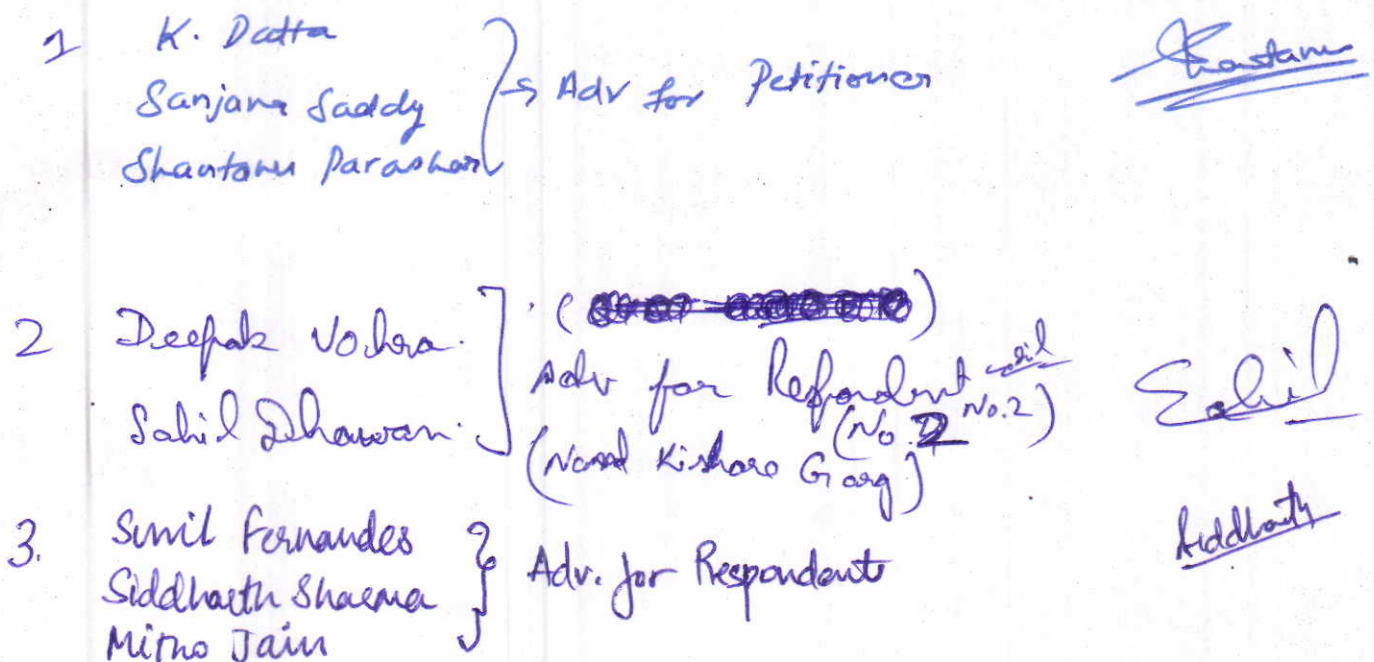 1 K. Datta
Sanjana Saddy
Shantanu Parashar
→ Adv for Petitioner
Shantanu
2 Deepak Vohra.
Sahil Dhawan.
Adv for Respondent
(No. 2 No.2)
(Nand Kishore Garg)
Sahil
3. Sunil Fernandes
Siddharth Sharma
Jain
Adv. for Respondents
Siddharth